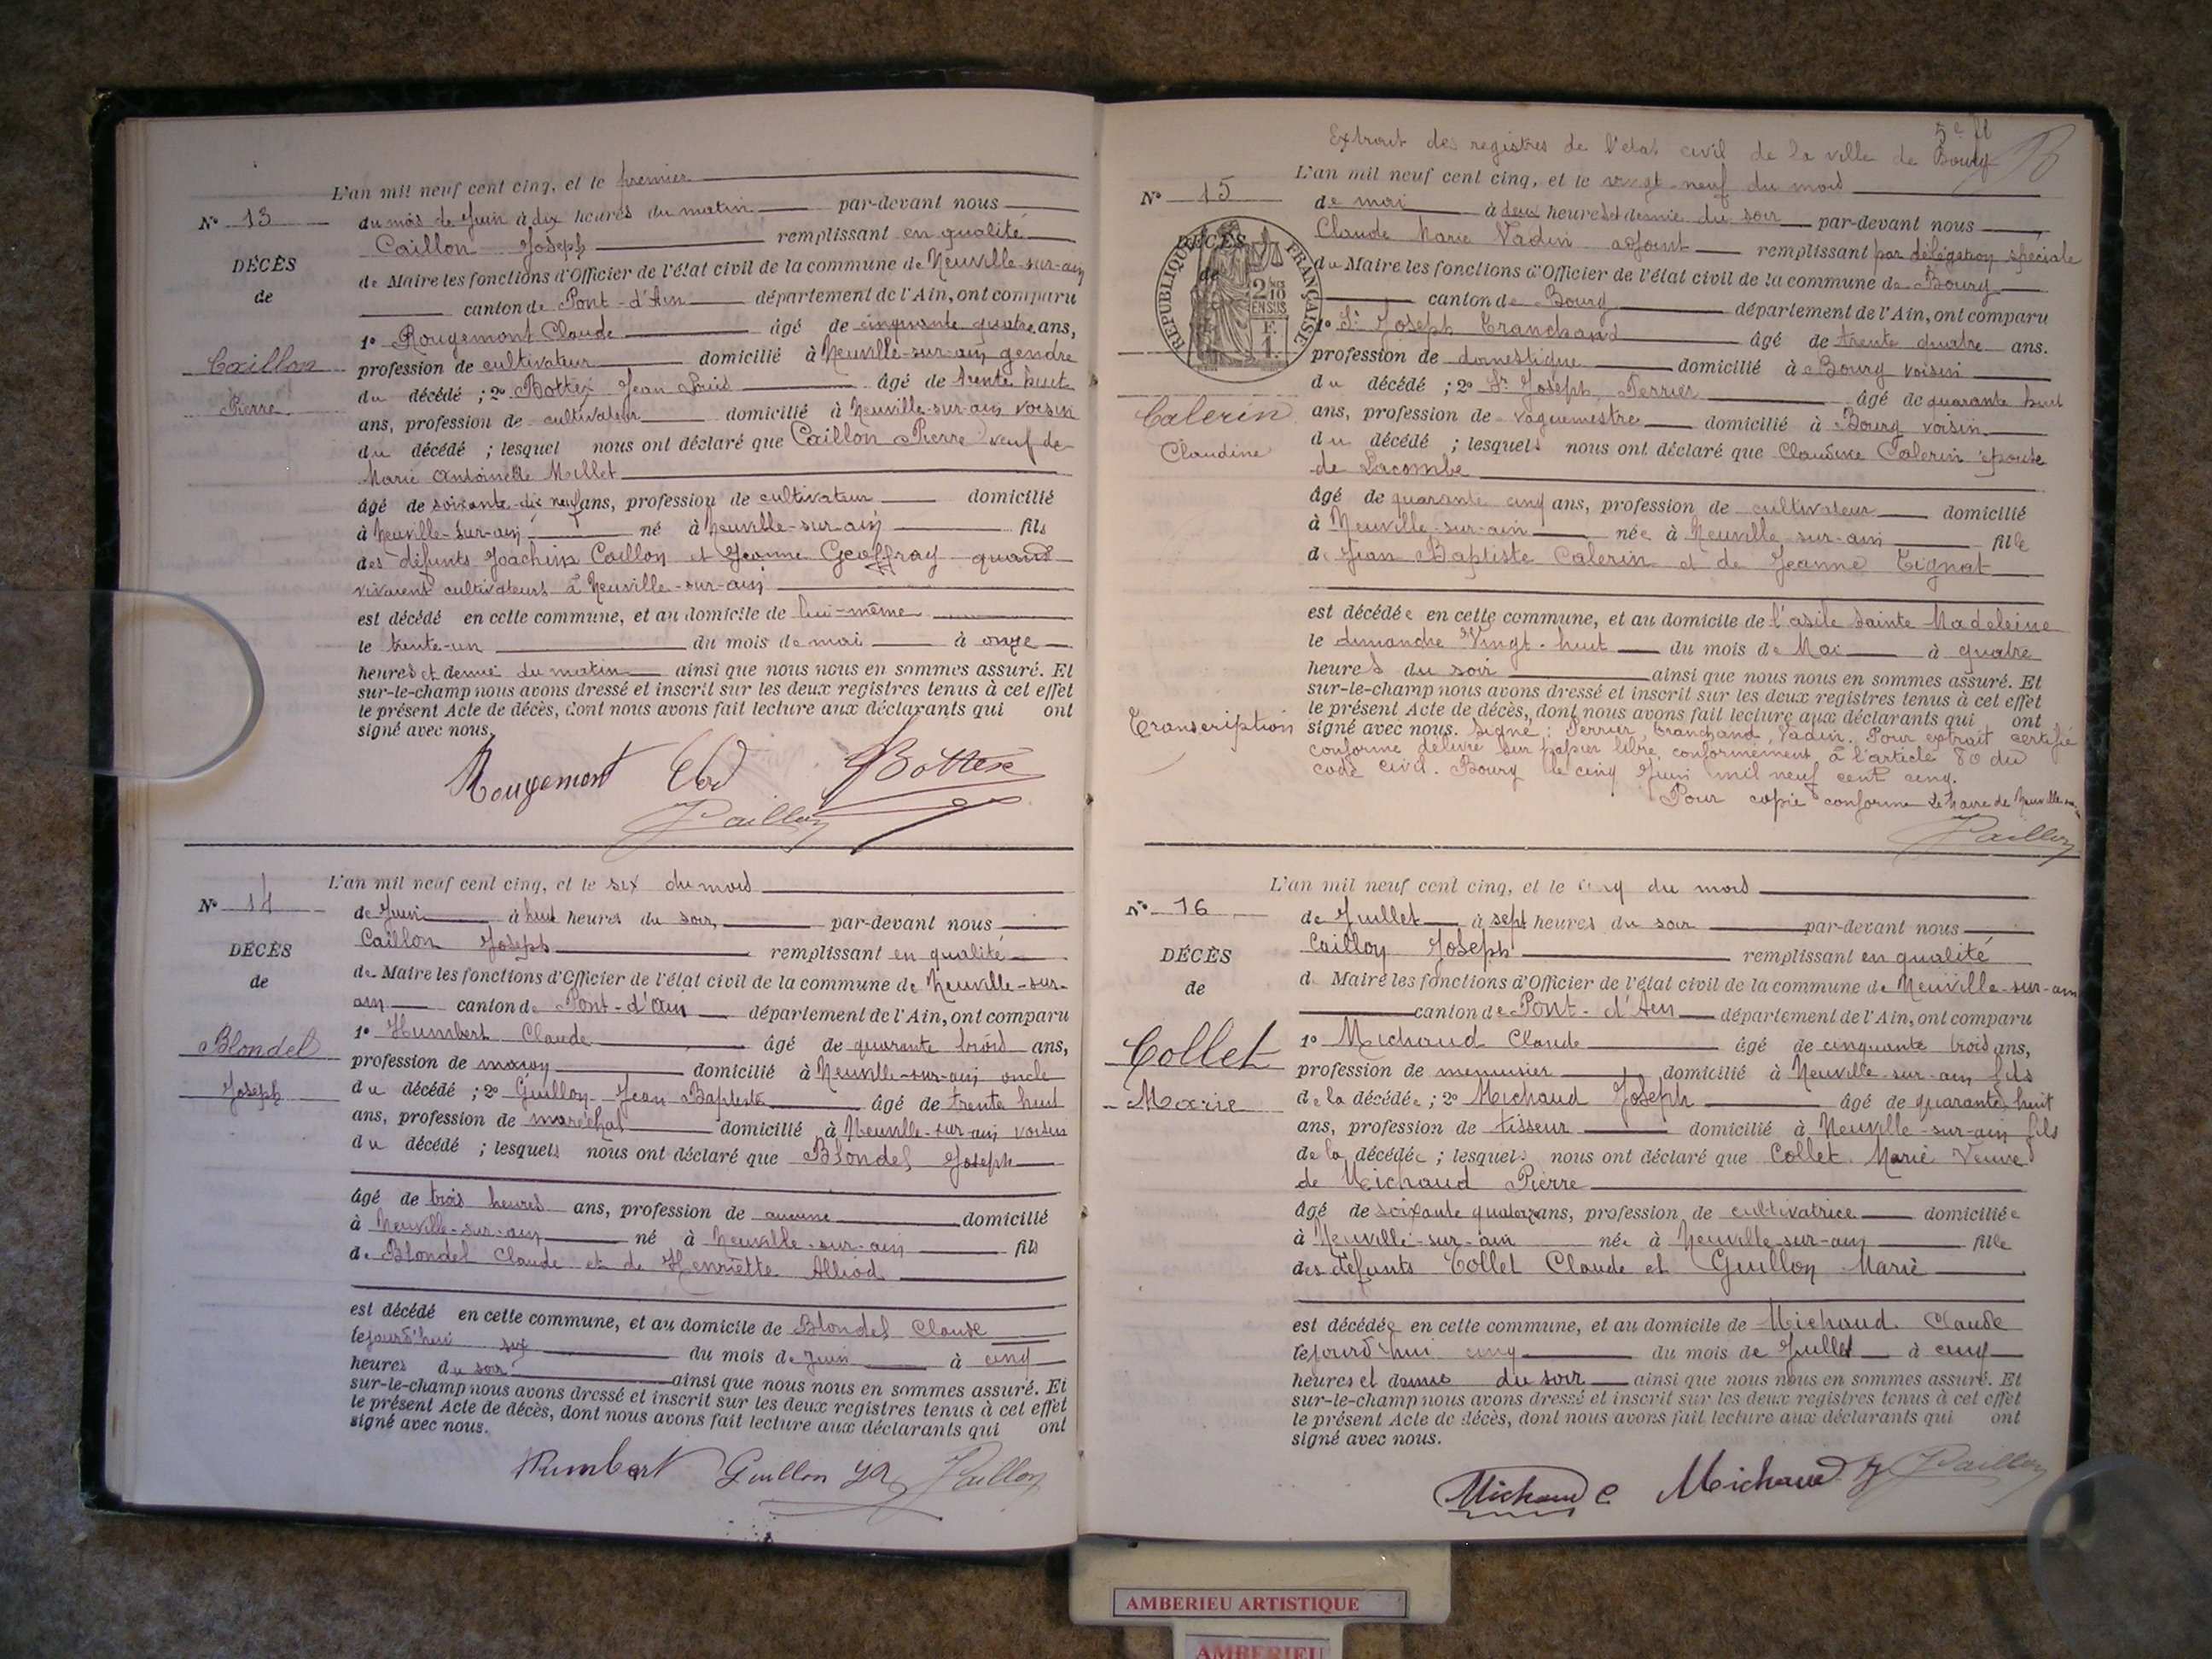 L'an mil neuf cent cinq, et le premier
Nº 13
du mois de Juin à dix heures du matin par-devant nous
Caillon Joseph remplissant en qualité
DÉCÈS
de Maire les fonctions d'Officier de l'état civil de la commune de Neuville-sur-ain
de
canton de Pont-d'Ain département de l'Ain, ont comparu
1º Rougemont Claude âgé de cinquante quatre ans,
Caillon
profession de cultivateur domicilié à Neuville-sur-ain gendre
du décédé ; 2º Bottex Jean Louis âgé de trente huit
Pierre
ans, profession de cultivateur domicilié à Neuville-sur-ain voisin
du décédé ; lesquel nous ont déclaré que Caillon Pierre veuf de
Marie Antoinette Millet
âgé de soixante-dix neuf ans, profession de cultivateur domicilié
à Neuville-sur-ain né à Neuville-sur-ain fils
des défunts Joachim Caillon et Jeanne Geoffray quand
vivaient cultivateurs à Neuville-sur-ain
est décédé en cette commune, et au domicile de lui-même
le trente-un du mois de mai à onze
heures et demie du matin ainsi que nous nous en sommes assuré. Et
sur-le-champ nous avons dressé et inscrit sur les deux registres tenus à cet effet
le présent Acte de décès, dont nous avons fait lecture aux déclarants qui ont
signé avec nous.
Rougemont Bottex
Caillon
L'an mil neuf cent cinq, et le six du mois
Nº 14
de Juin à huit heures du soir, par-devant nous
Caillon Joseph remplissant en qualité
DÉCÈS
de Maire les fonctions d'Officier de l'état civil de la commune de Neuville-sur-
de
ain canton de Pont-d'ain département de l'Ain, ont comparu
1º Humbert Claude âgé de quarante trois ans,
Blondel
profession de maçon domicilié à Neuville-sur-ain oncle
du décédé ; 2º Guillon Jean Baptiste âgé de trente huit
Joseph
ans, profession de maréchal domicilié à Neuville-sur-ain voisin
du décédé ; lesquels nous ont déclaré que Blondel Joseph
âgé de trois heures ans, profession de aucune domicilié
à Neuville-sur-ain né à Neuville-sur-ain fils
de Blondel Claude et de Henriette Alliod
est décédé en cette commune, et au domicile de Blondel Claude
lejourd'hui six du mois de Juin à cinq
heures du soir ainsi que nous nous en sommes assuré. Et
sur-le-champ nous avons dressé et inscrit sur les deux registres tenus à cet effet
le présent Acte de décès, dont nous avons fait lecture aux déclarants qui ont
signé avec nous.
Humbert Guillon Caillon
5e
Extrait des registres de l'état civil de la ville de Bourg
L'an mil neuf cent cinq, et le vingt-neuf du mois
Nº 15
de mai à deux heures et demie du soir par-devant nous
Claude Marie Vadin adjoint remplissant par délégation spéciale
DÉCÈS
du Maire les fonctions d'Officier de l'état civil de la commune de Bourg
de
RÉPUBLIQUE FRANÇAISE
canton de Bourg département de l'Ain, ont comparu
2/10 EN SUS
F. 1.
1º Sr Joseph Tranchand âgé de trente quatre ans.
profession de domestique domicilié à Bourg voisin
du décédé ; 2º Sr Joseph Perrier âgé de quarante huit
Calerin
ans, profession de vaguemestre domicilié à Bourg voisin
Claudine
du décédé ; lesquels nous ont déclaré que Claudine Calerin épouse
de Lacombe
âgé de quarante cinq ans, profession de cultivateur domicilié
à Neuville-sur-ain née à Neuville-sur-ain fille
de Jean Baptiste Calerin et de Jeanne Tignat
est décédée en cette commune, et au domicile de l'asile Sainte Madeleine
le dimanche vingt-huit du mois de Mai à quatre
heures du soir ainsi que nous nous en sommes assuré. Et
sur-le-champ nous avons dressé et inscrit sur les deux registres tenus à cet effet
le présent Acte de décès, dont nous avons fait lecture aux déclarants qui ont
Transcription
signé avec nous. Signé : Perrier, Tranchand, Vadin. Pour extrait certifié
conforme délivré sur papier libre, conformément à l'article 80 du
code civil. Bourg le cinq Juin mil neuf cent cinq.
Pour copie conforme Le Maire de Neuville
Caillon
L'an mil neuf cent cinq, et le cinq du mois
Nº 16
de Juillet à sept heures du soir par-devant nous
Caillon Joseph remplissant en qualité
DÉCÈS
d Maire les fonctions d'Officier de l'état civil de la commune de Neuville-sur-ain
de
canton de Pont-d'Ain département de l'Ain, ont comparu
1º Michaud Claude âgé de cinquante trois ans,
Collet
profession de menuisier domicilié à Neuville-sur-ain fils
Marie
de la décédée ; 2º Michaud Joseph âgé de quarante huit
ans, profession de tisseur domicilié à Neuville-sur-ain fils
de la décédée ; lesquels nous ont déclaré que Collet Marie Veuve
de Michaud Pierre
âgé de soixante quatorze ans, profession de cultivatrice domiciliée
à Neuville-sur-ain née à Neuville-sur-ain fille
des défunts Collet Claude et Guillon Marie
est décédée en cette commune, et au domicile de Michaud Claude
lejourd'hui cinq du mois de Juillet à cinq
heures et demie du soir ainsi que nous nous en sommes assuré. Et
sur-le-champ nous avons dressé et inscrit sur les deux registres tenus à cet effet
le présent Acte de décès, dont nous avons fait lecture aux déclarants qui ont
signé avec nous.
Michaud C Michaud J Caillon
AMBERIEU ARTISTIQUE
AMBERIEU